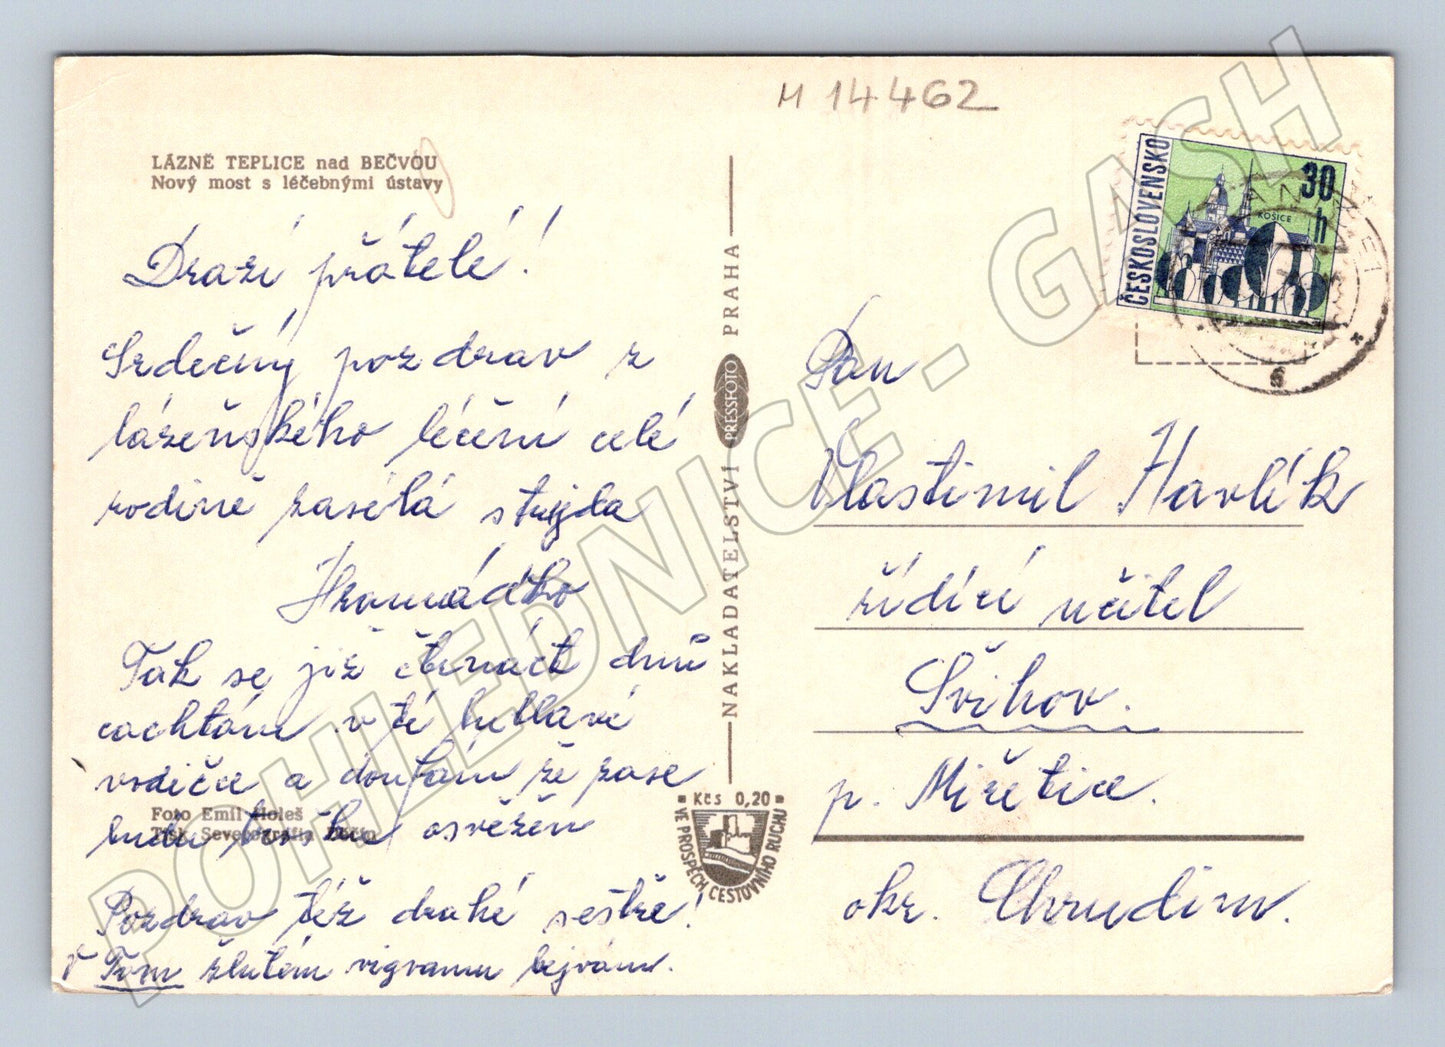 M 14462
LÁZNĚ TEPLICE nad BEČVOU
Nový most s léčebnými ústavy
Drazí přátelé!
Srdečný pozdrav z
lázeňského léčení celé
rodině zasílá strýda
Hromádko
Tak se již čtrnáct dnů
cachtám v té bublavé
vodičce a doufám že zase
budu trochu osvěžen
Foto Emil Holeš
Tisk Severografia Děčín
Pozdrav též drahé sestře!
V Tom žlutém vigvamu bejvám.
NAKLADATELSTVÍ PRESSFOTO PRAHA
Kčs 0,20
VE PROSPĚCH CESTOVNÍHO RUCHU
ČESKOSLOVENSKO
30 h
KOŠICE
6
Pan
Vlastimil Havlík
řídící učitel
Švihov.
p. Miřetice.
okr. Chrudim.
POHLEDNICE - GASH